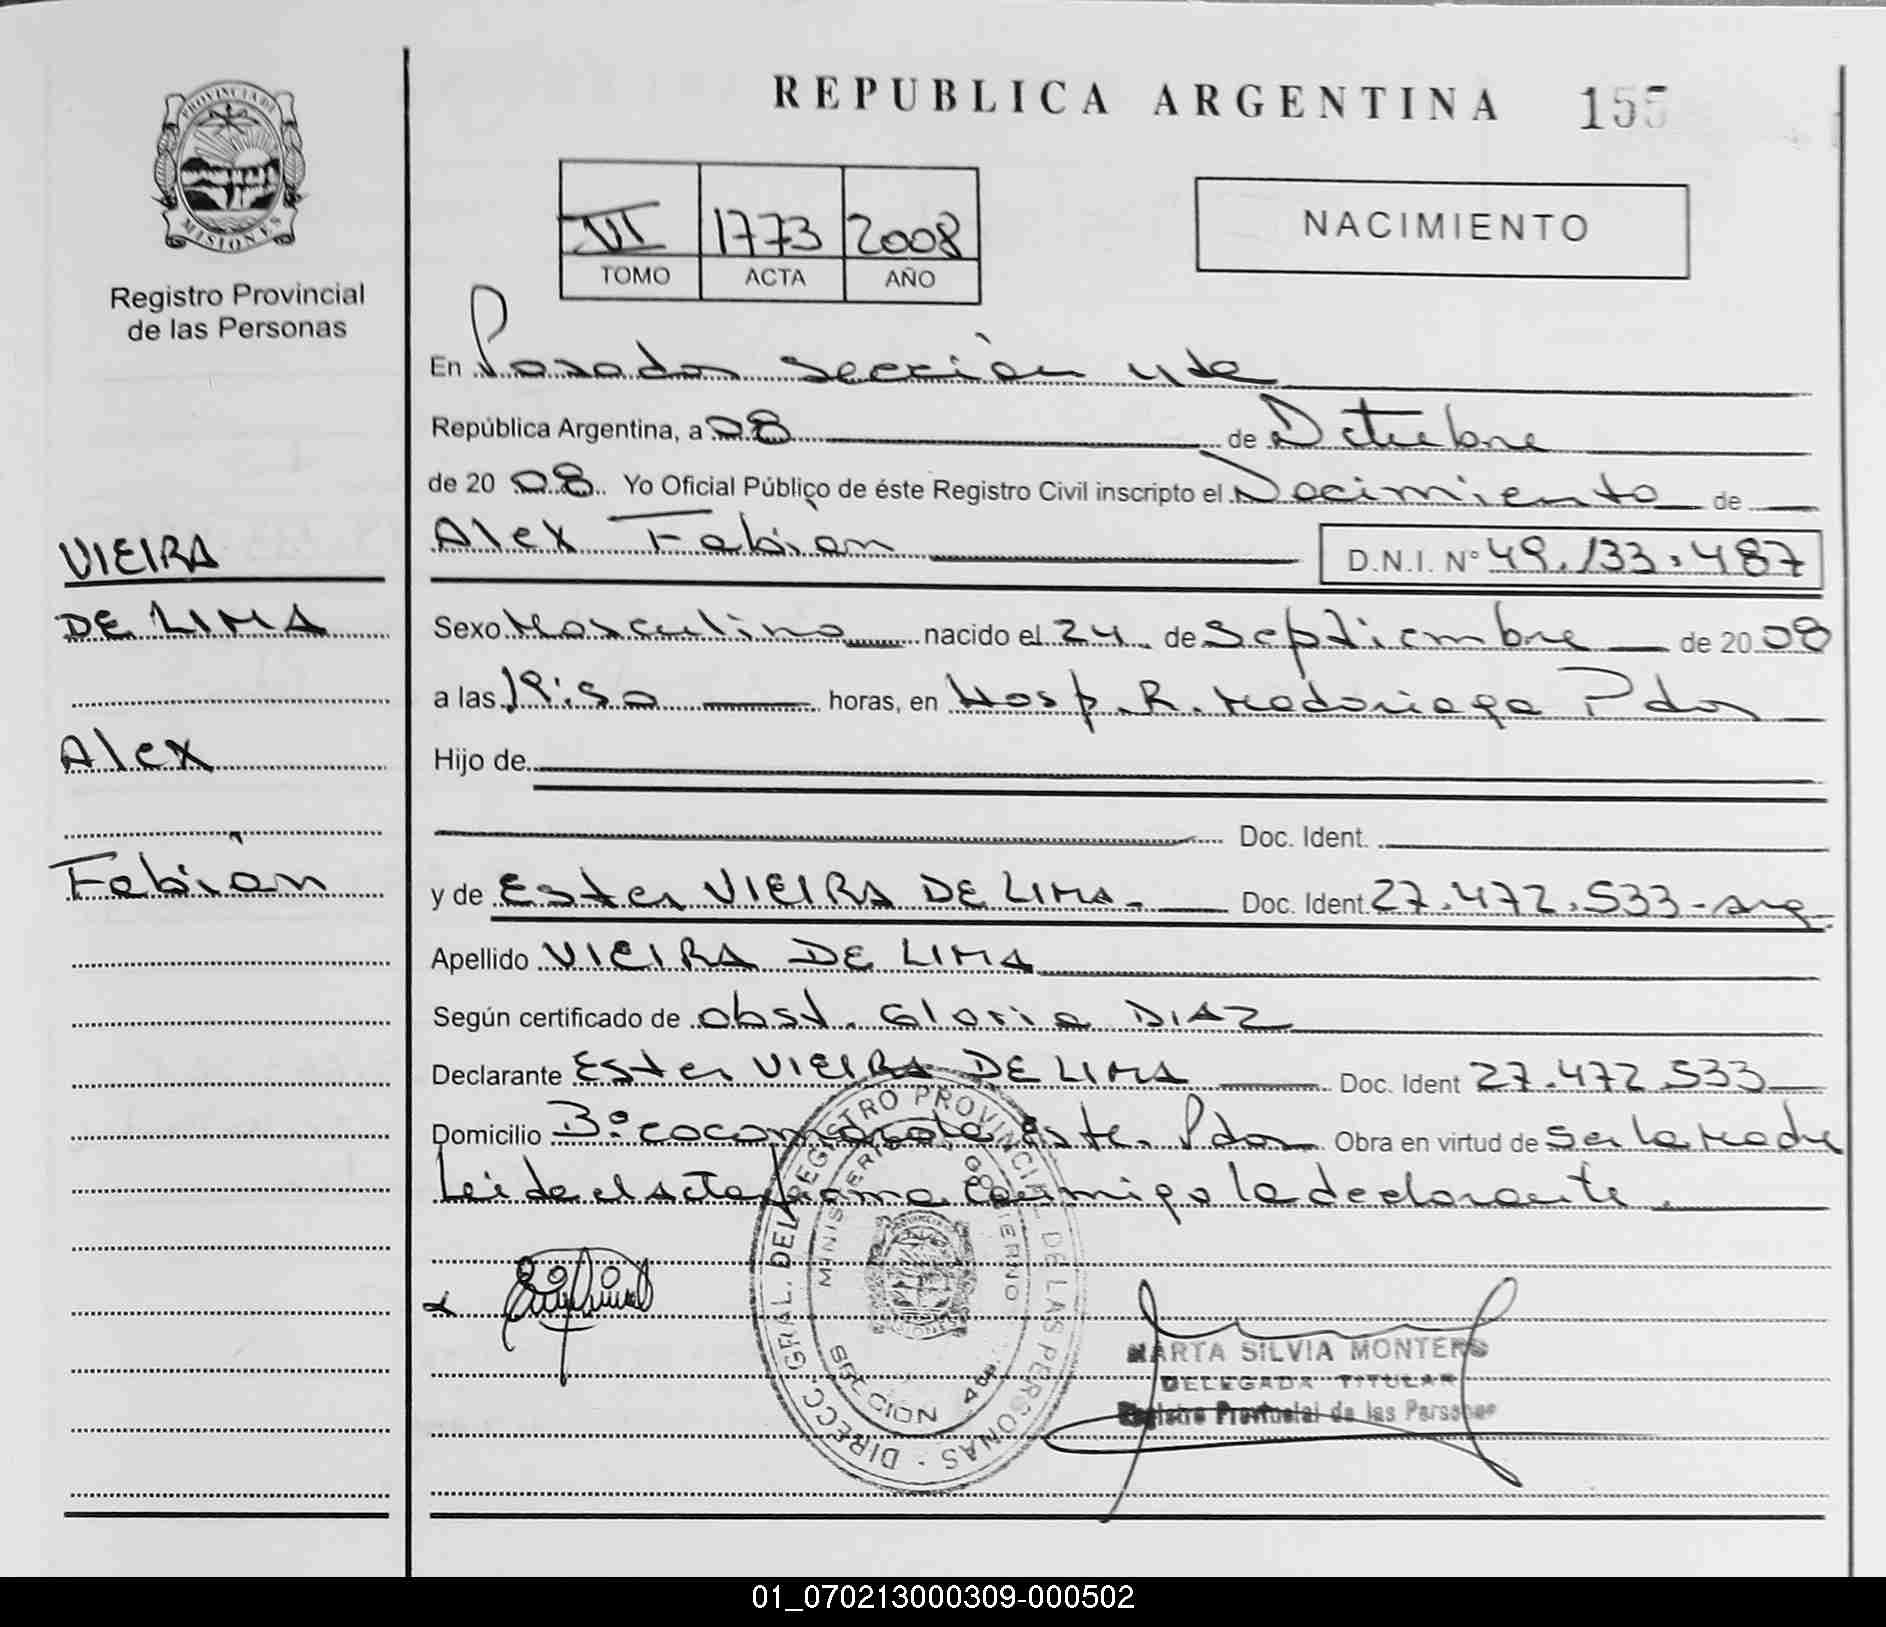 REPUBLICA ARGENTINA 155
PROVINCIA DE
MISIONES
Registro Provincial
de las Personas
VI 1773 2008
TOMO ACTA AÑO
NACIMIENTO
En Posadas sección 4ta
República Argentina, a 08 de Octubre
de 20 08. Yo Oficial Público de éste Registro Civil inscripto el Nacimiento de
Alex Fabián D.N.I. Nº 49.133.487
VIEIRA
DE LIMA
Alex
Fabián
Sexo Masculino nacido el 24 de Septiembre de 20 08
a las horas, en Hosp. R. Madariaga Pdas
Hijo de
Doc. Ident.
y de Ester VIEIRA DE LIMA. Doc. Ident. 27.472.533-arg.
Apellido VIEIRA DE LIMA
Según certificado de obst. Gloria DIAZ
Declarante Ester VIEIRA DE LIMA Doc. Ident 27.472.533
Domicilio Bº cocomarola este. Pdas Obra en virtud de Ser la Madre
Leída el acta firma conmigo la declarante.
DIRECC. GRAL. DEL REGISTRO PROVINCIAL DE LAS PERSONAS
MINISTERIO GOBIERNO
SECCION 4ta.
MARTA SILVIA MONTERO
DELEGADA TITULAR
Registro Provincial de las Personas
01_070213000309-000502